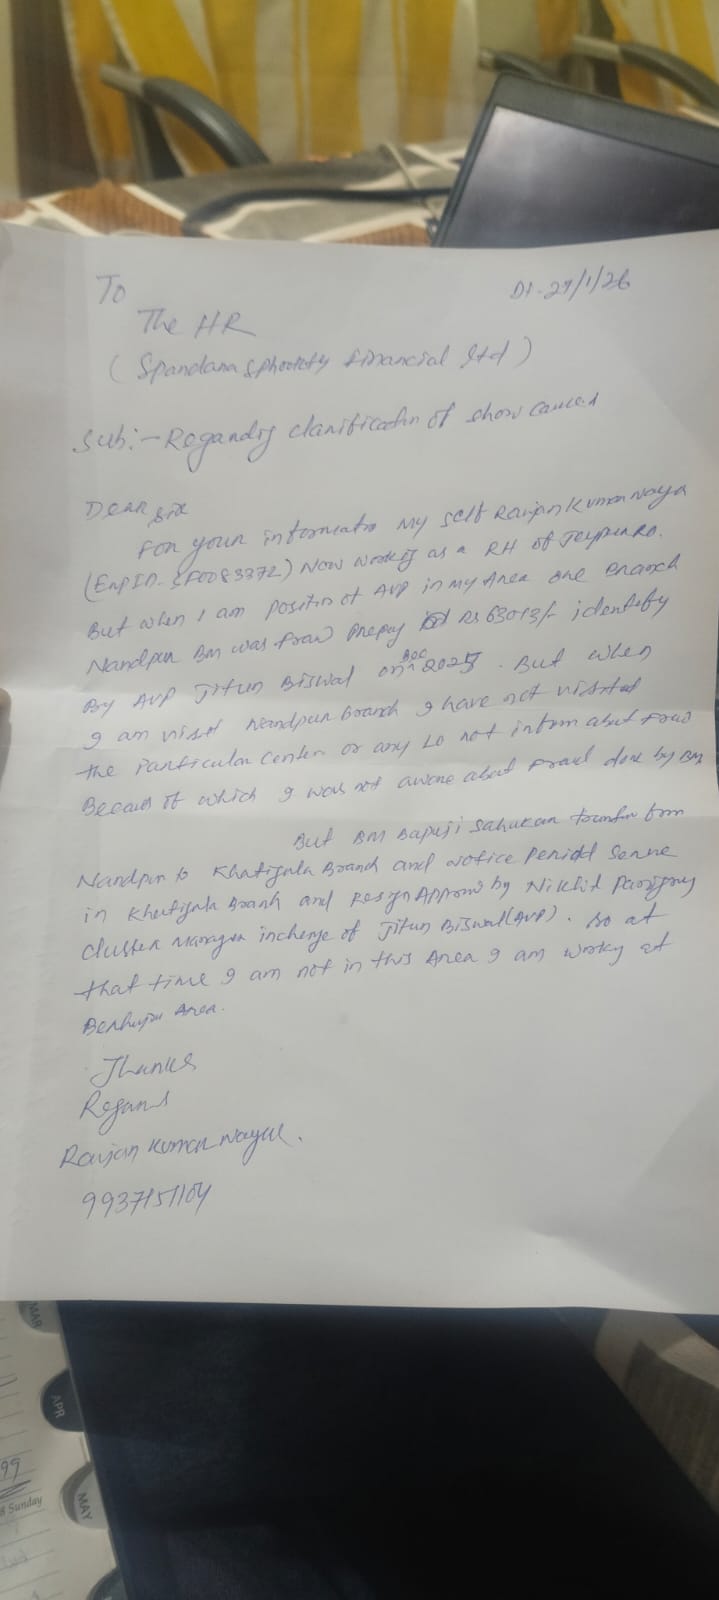 To
Dt-27/1/26
The HR
(Spandana Sphoorty financial ltd)
Sub:- Regarding clarification of show caused
Dear sir
For your information my self Ranjan Kumar Nayak
(Emp ID. SF0083372) Now working as a RH of Jeypur RO.
But when I am position of AVP in my Area one branch
Nandpur BM was fraud prepay Rs 63013/- identify
By AVP Jitun Biswal on Dec 2025. But when
I am visit Nandpur Branch I have not visited
the Particular center or any LO not inform about fraud
Because of which I was not aware about fraud done by BM
But BM Bapuji Sahukar transfer from
Nandpur to Khatiguda Branch and Notice Period Serve
in Khatiguda Branh and Resign Approved by Nikhit
Cluster Manager incharge of Jitun Biswal(AVP). so at
that time I am not in this Area I am worky at
Berhupur Area.
Thanks
Regard
Ranjan Kumar Nayak.
9937151104
MAR
APR
MAY
99
8 Sunday